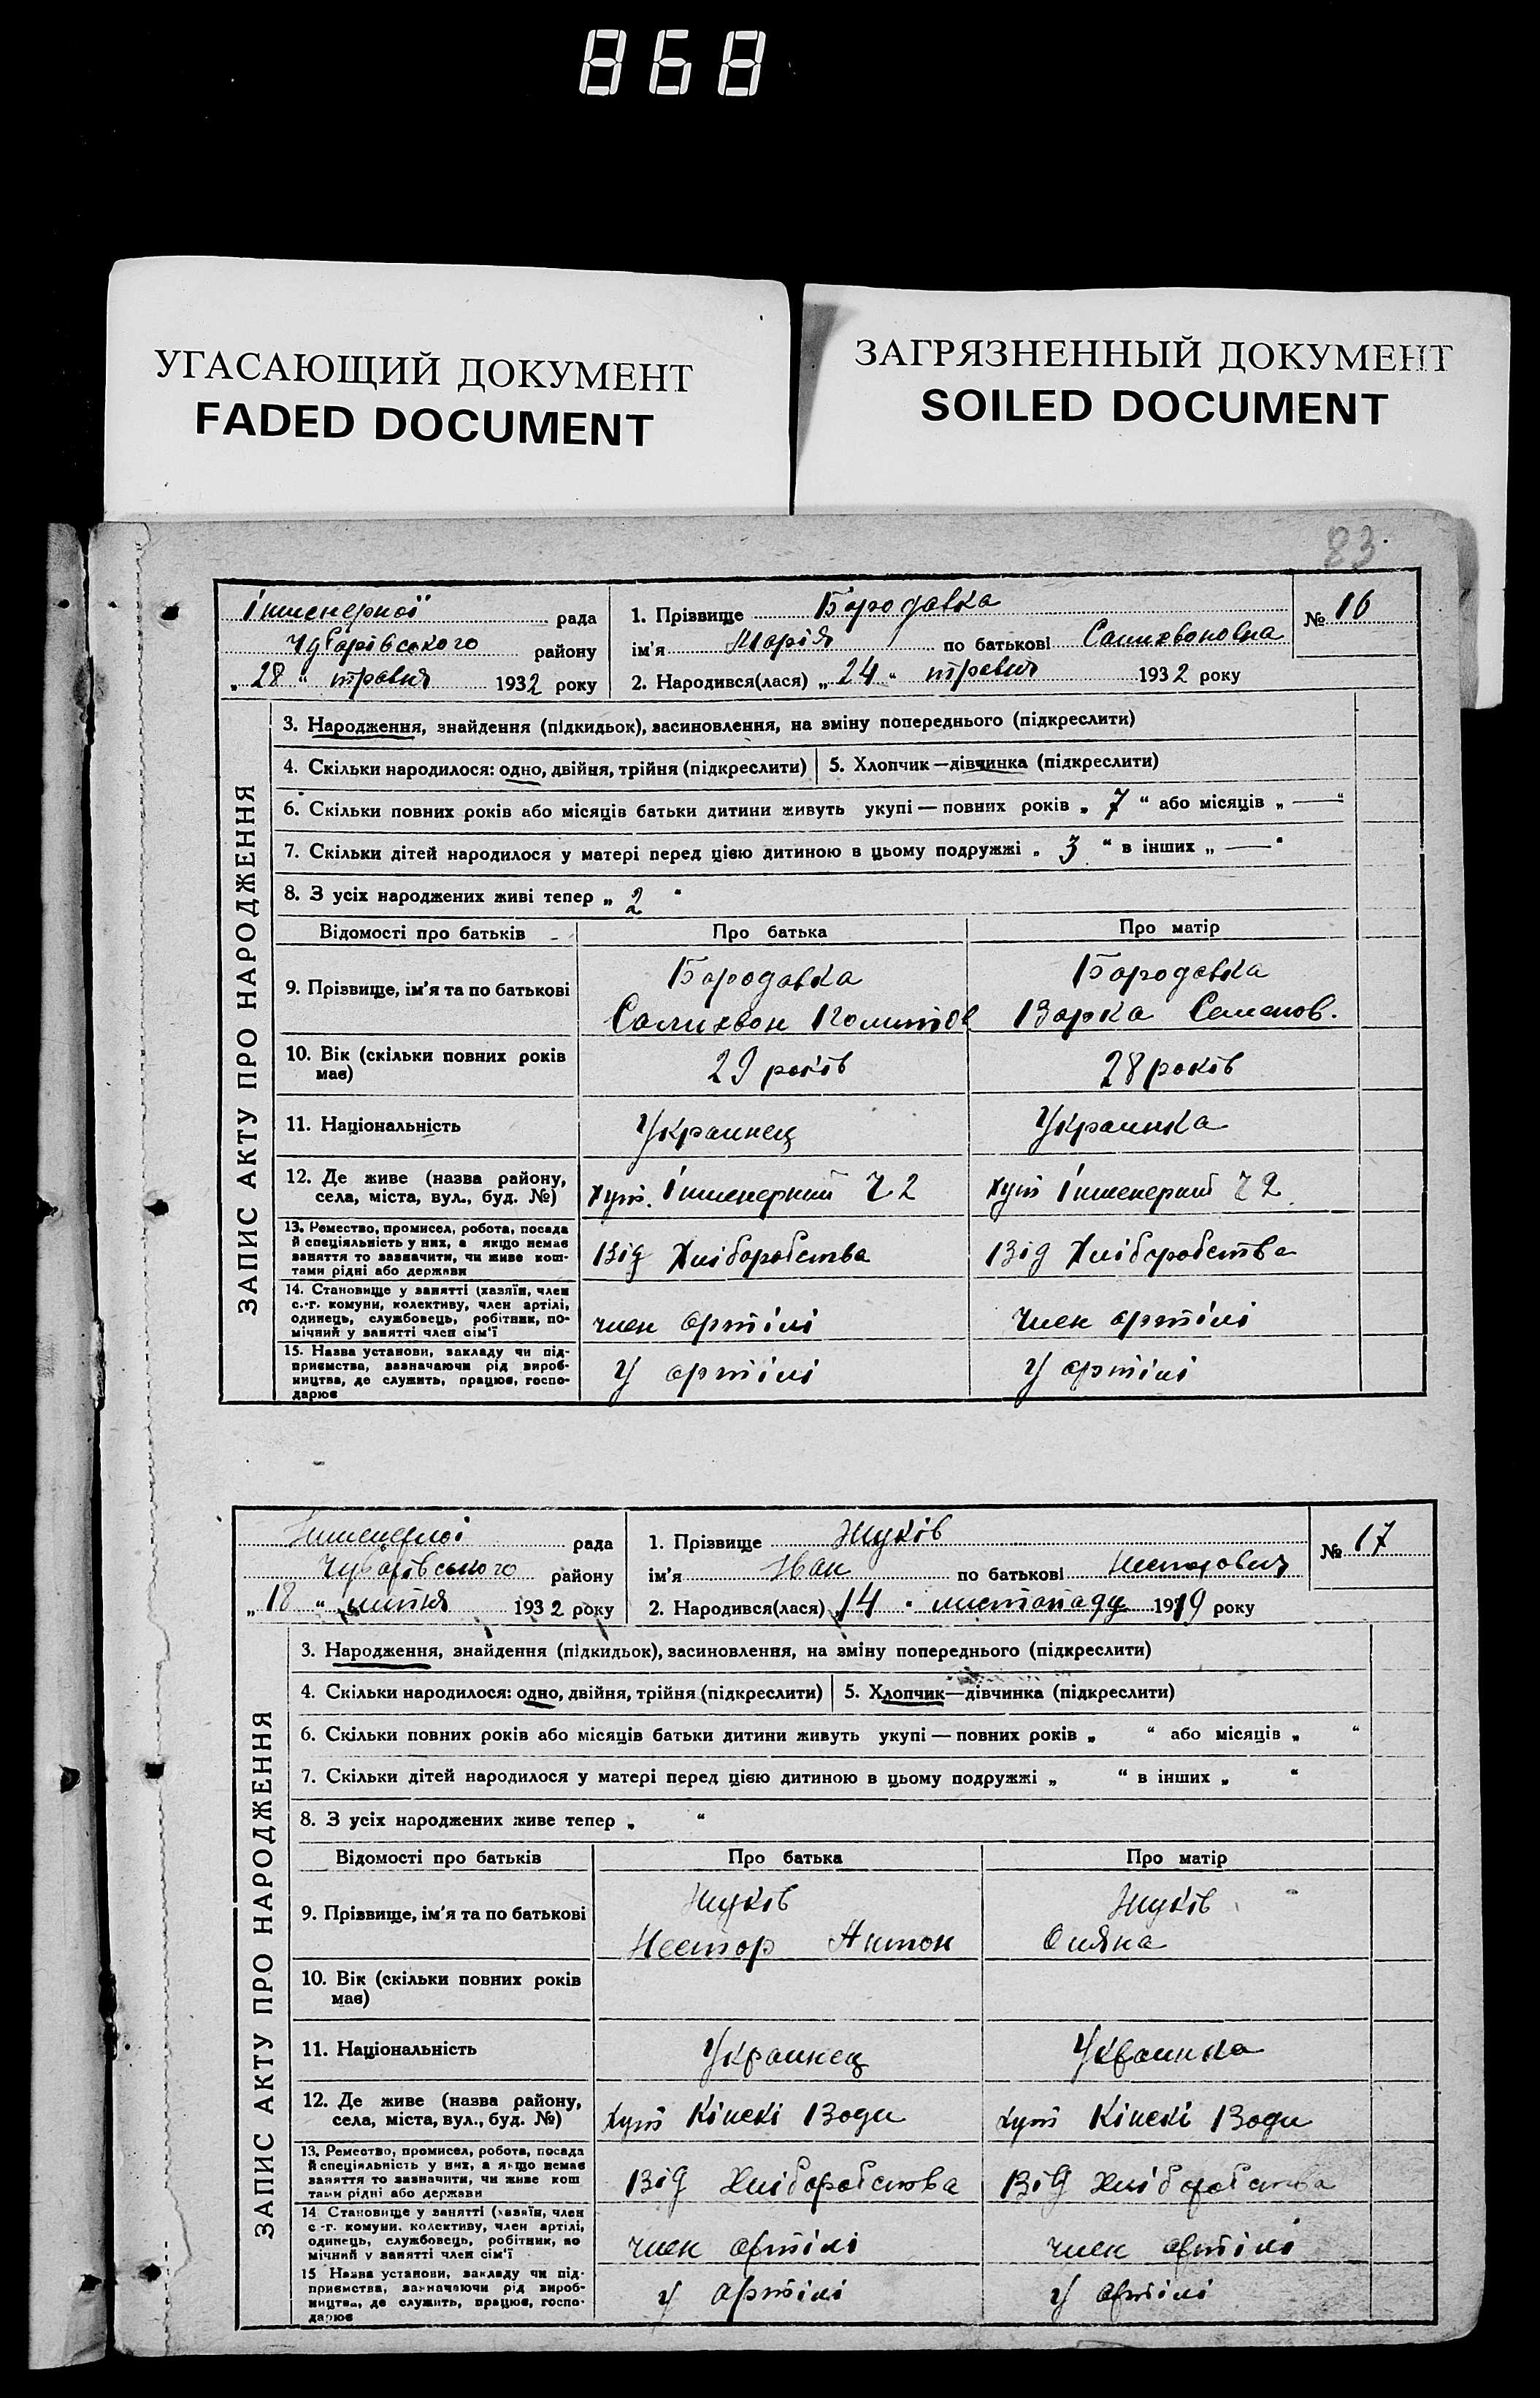 868
УГАСАЮЩИЙ ДОКУМЕНТ
FADED DOCUMENT
ЗАГРЯЗНЕННЫЙ ДОКУМЕНТ
SOILED DOCUMENT
83
Інженерної рада
Чубарівського району
„ 28 “ травня 1932 року
1. Прізвище Бородавка
ім'я Марія по батькові
2. Народився(лася) „ 24 “ травня 1932 року
№ 16
ЗАПИС АКТУ ПРО НАРОДЖЕННЯ
3. Народження, знайдення (підкидьок), васиновлення, на зміну попереднього (підкреслити)
4. Скільки народилося: одно, двійня, трійня (підкреслити)
5. Хлопчик—дівчинка (підкреслити)
6. Скільки повних років або місяців батьки дитини живуть укупі — повних років „ 7 “ або місяців „ — “
7. Скільки дітей народилося у матері перед цією дитиною в цьому подружжі „ 3 “ в інших „ — “
8. З усіх народжених живі тепер „ 2 “
Відомості про батьків Про батька Про матір
9. Прізвище, ім'я та по батькові
Бородавка
Бородавка
Варка Семенов.
10. Вік (скільки повних років має)
29 років
28 років
11. Національність
Украинец
Украинка
12. Де живе (назва району, села, міста, вул., буд. №)
хут. Інженерний Ч 2
хут Інженерний Ч 2
13. Ремество, промисел, робота, посада
й спеціяльність у них, а якщо немає
заняття то зазначити, чи живе кош-
тами рідні або держави
Від Хліборобства
Від Хліборобства
14. Становище у занятті (хазяїн, член
с.-г. комуни, колективу, член артілі,
одинець, службовець, робітник, по-
мічний у занятті член сім'ї
член артілі
член артілі
15. Назва установи, закладу чи під-
приємства, зазначаючи рід вироб-
ництва, де служить, працює, госпо-
дарює
У артілі
У артілі
Інженерної рада
Чубарівського району
„ 18 “ липня 1932 року
1. Прізвище Жуків
ім'я Іван по батькові Несторович
2. Народився(лася) „ 14 “ листопаду 1919 року
№ 17
ЗАПИС АКТУ ПРО НАРОДЖЕННЯ
3. Народження, знайдення (підкидьок), васиновлення, на зміну попереднього (підкреслити)
4. Скільки народилося: одно, двійня, трійня (підкреслити)
5. Хлопчик—дівчинка (підкреслити)
6. Скільки повних років або місяців батьки дитини живуть укупі — повних років „ “ або місяців „ “
7. Скільки дітей народилося у матері перед цією дитиною в цьому подружжі „ “ в інших „ “
8. З усіх народжених живе тепер „ “
Відомості про батьків Про батька Про матір
9. Прізвище, ім'я та по батькові
Жуків
Нестор Антон
Жуків
10. Вік (скільки повних років має)
11. Національність
Украинец
Украинка
12. Де живе (назва району, села, міста, вул., буд. №)
хут Кінскі Води
хут Кінскі Води
13. Ремество, промисел, робота, посада
й спеціяльність у них, а якщо немає
заняття то зазначити, чи живе кош
тами рідні або держави
Від Хліборобства
Від Хліборобства
14 Становище у занятті (хазяїн, член
с -г. комуни, колективу, член артілі,
одинець, службовець, робітник, по
мічний у занятті член сім'ї
член артілі
член артілі
15 Назва установи, закладу чи під-
приємства, зазначаючи рід вироб-
ництва, де служить, працює, госпо-
дарює
У артілі
У артілі